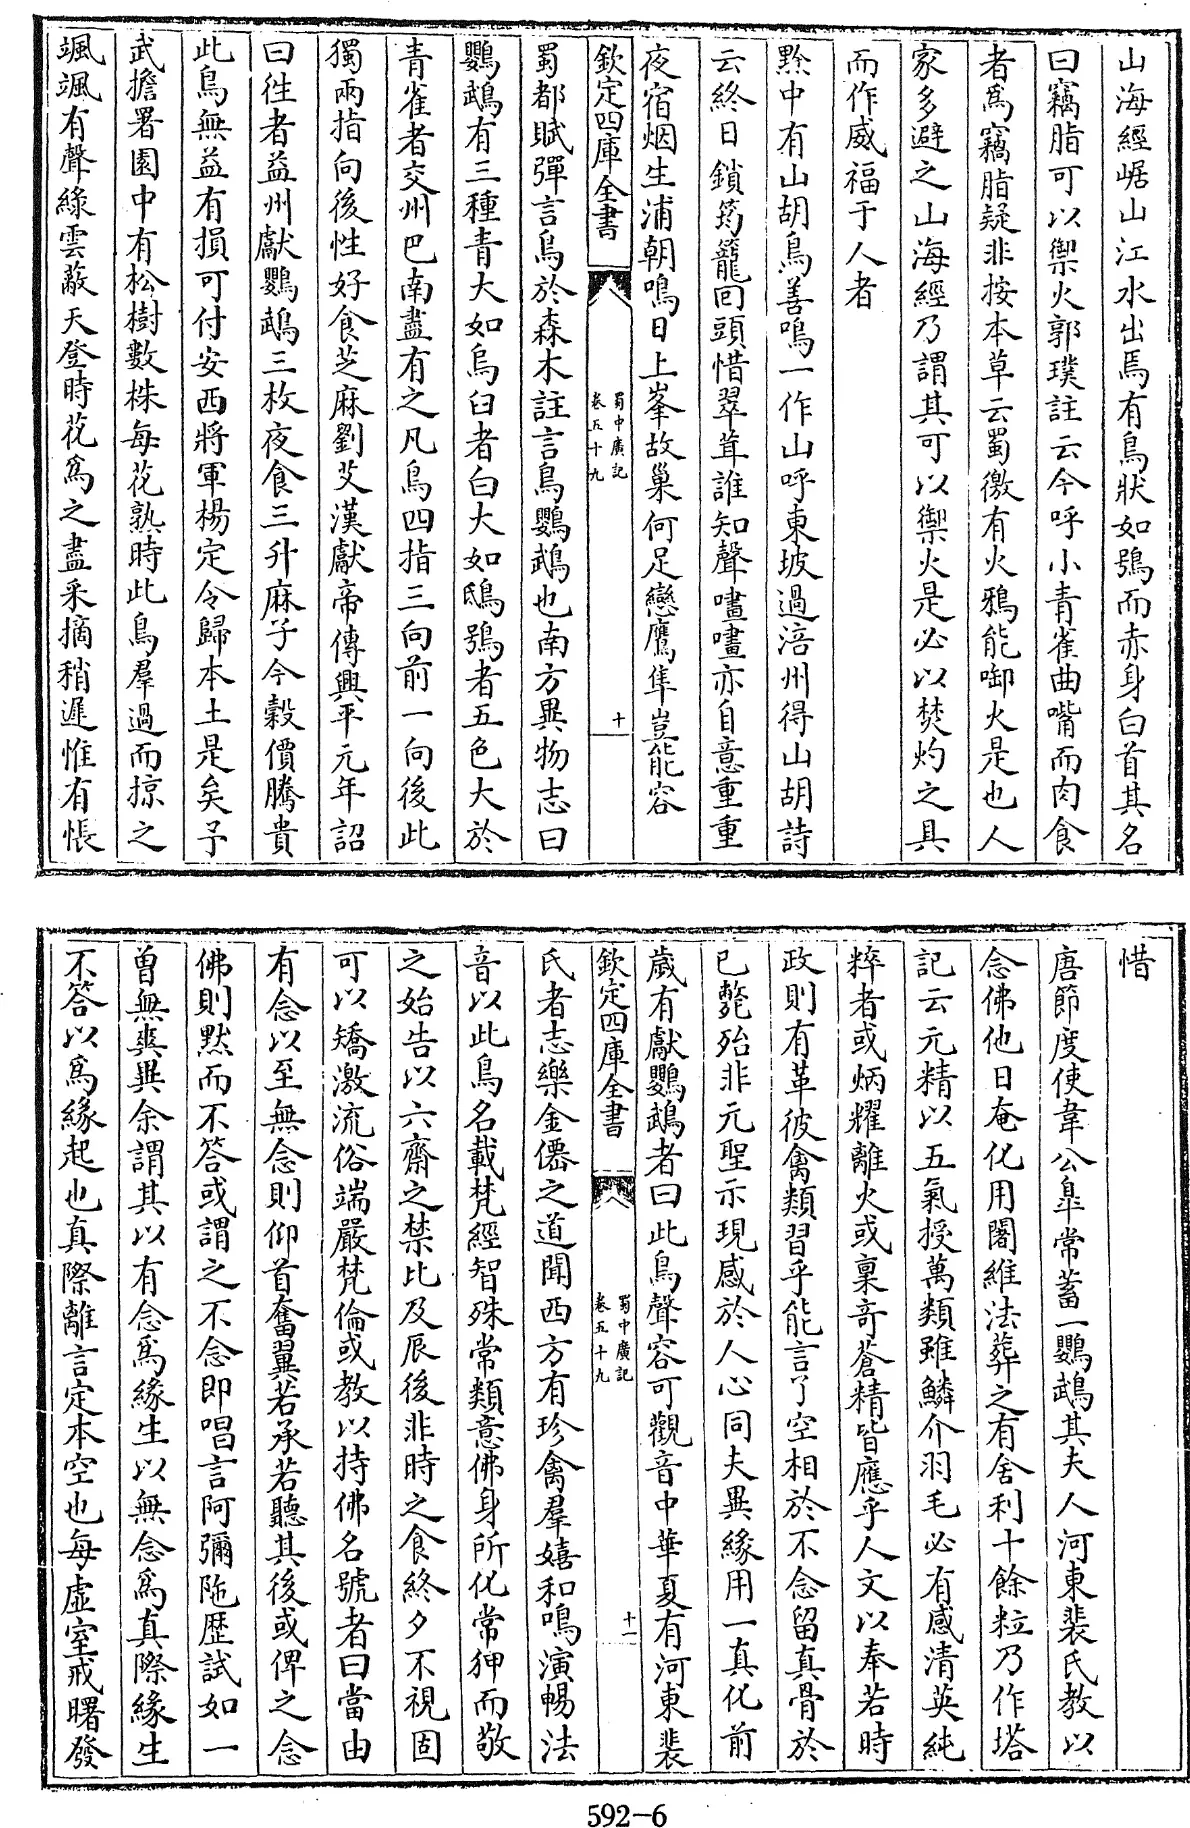 山海經崌山江水出焉有鳥狀如鴞而赤身白首其名
曰竊脂可以禦火郭璞註云今呼小青雀曲嘴而肉食
者爲竊脂疑非按本草云蜀徼有火鴉能啣火是也人
家多避之山海經乃謂其可以禦火是必以焚灼之具
而作威福于人者
黔中有山胡鳥善鳴一作山呼東坡過涪州得山胡詩
云終日鎖筠籠回頭惜翠茸誰知聲嘒嘒亦自意重重
夜宿烟生浦朝鳴日上峯故巢何足戀鷹隼豈能容
欽定四庫全書
蜀中廣記
卷五十九
十
蜀都賦彈言鳥於森木註言鳥鸚鵡也南方異物志曰
鸚鵡有三種青大如烏臼者白大如鴟鴞者五色大於
青雀者交州巴南盡有之凡鳥四指三向前一向後此
獨兩指向後性好食芝麻劉艾漢獻帝傳興平元年詔
曰徃者益州獻鸚鵡三枚夜食三升麻子今穀價騰貴
此鳥無益有損可付安西將軍楊定令歸本土是矣予
武擔署園中有松樹數株每花熟時此鳥羣過而掠之
颯颯有聲綠雲蔽天登時花爲之盡采摘稍遲惟有悵
惜
唐節度使韋公臯常蓄一鸚鵡其夫人河東裴氏教以
念佛他日奄化用闍維法葬之有舍利十餘粒乃作塔
記云元精以五氣授萬類雖鱗介羽毛必有感清英純
粹者或炳耀離火或稟奇蒼精皆應乎人文以奉若時
政則有革彼禽類習乎能言了空相於不念留真骨於
已斃殆非元聖示現感於人心同夫異緣用一真化前
歲有獻鸚鵡者曰此鳥聲容可觀音中華夏有河東裴
欽定四庫全書
蜀中廣記
卷五十九
十一
氏者志樂金僊之道聞西方有珍禽羣嬉和鳴演暢法
音以此鳥名載梵經智殊常類意佛身所化常狎而敬
之始告以六齋之禁比及辰後非時之食終夕不視固
可以矯激流俗端嚴梵倫或教以持佛名號者曰當由
有念以至無念則仰首奮翼若承若聽其後或俾之念
佛則默而不答或謂之不念即唱言阿彌陁歴試如一
曽無爽異余謂其以有念爲緣生以無念爲真際緣生
不答以爲緣起也真際離言定本空也每虛室戒曙發
592-6